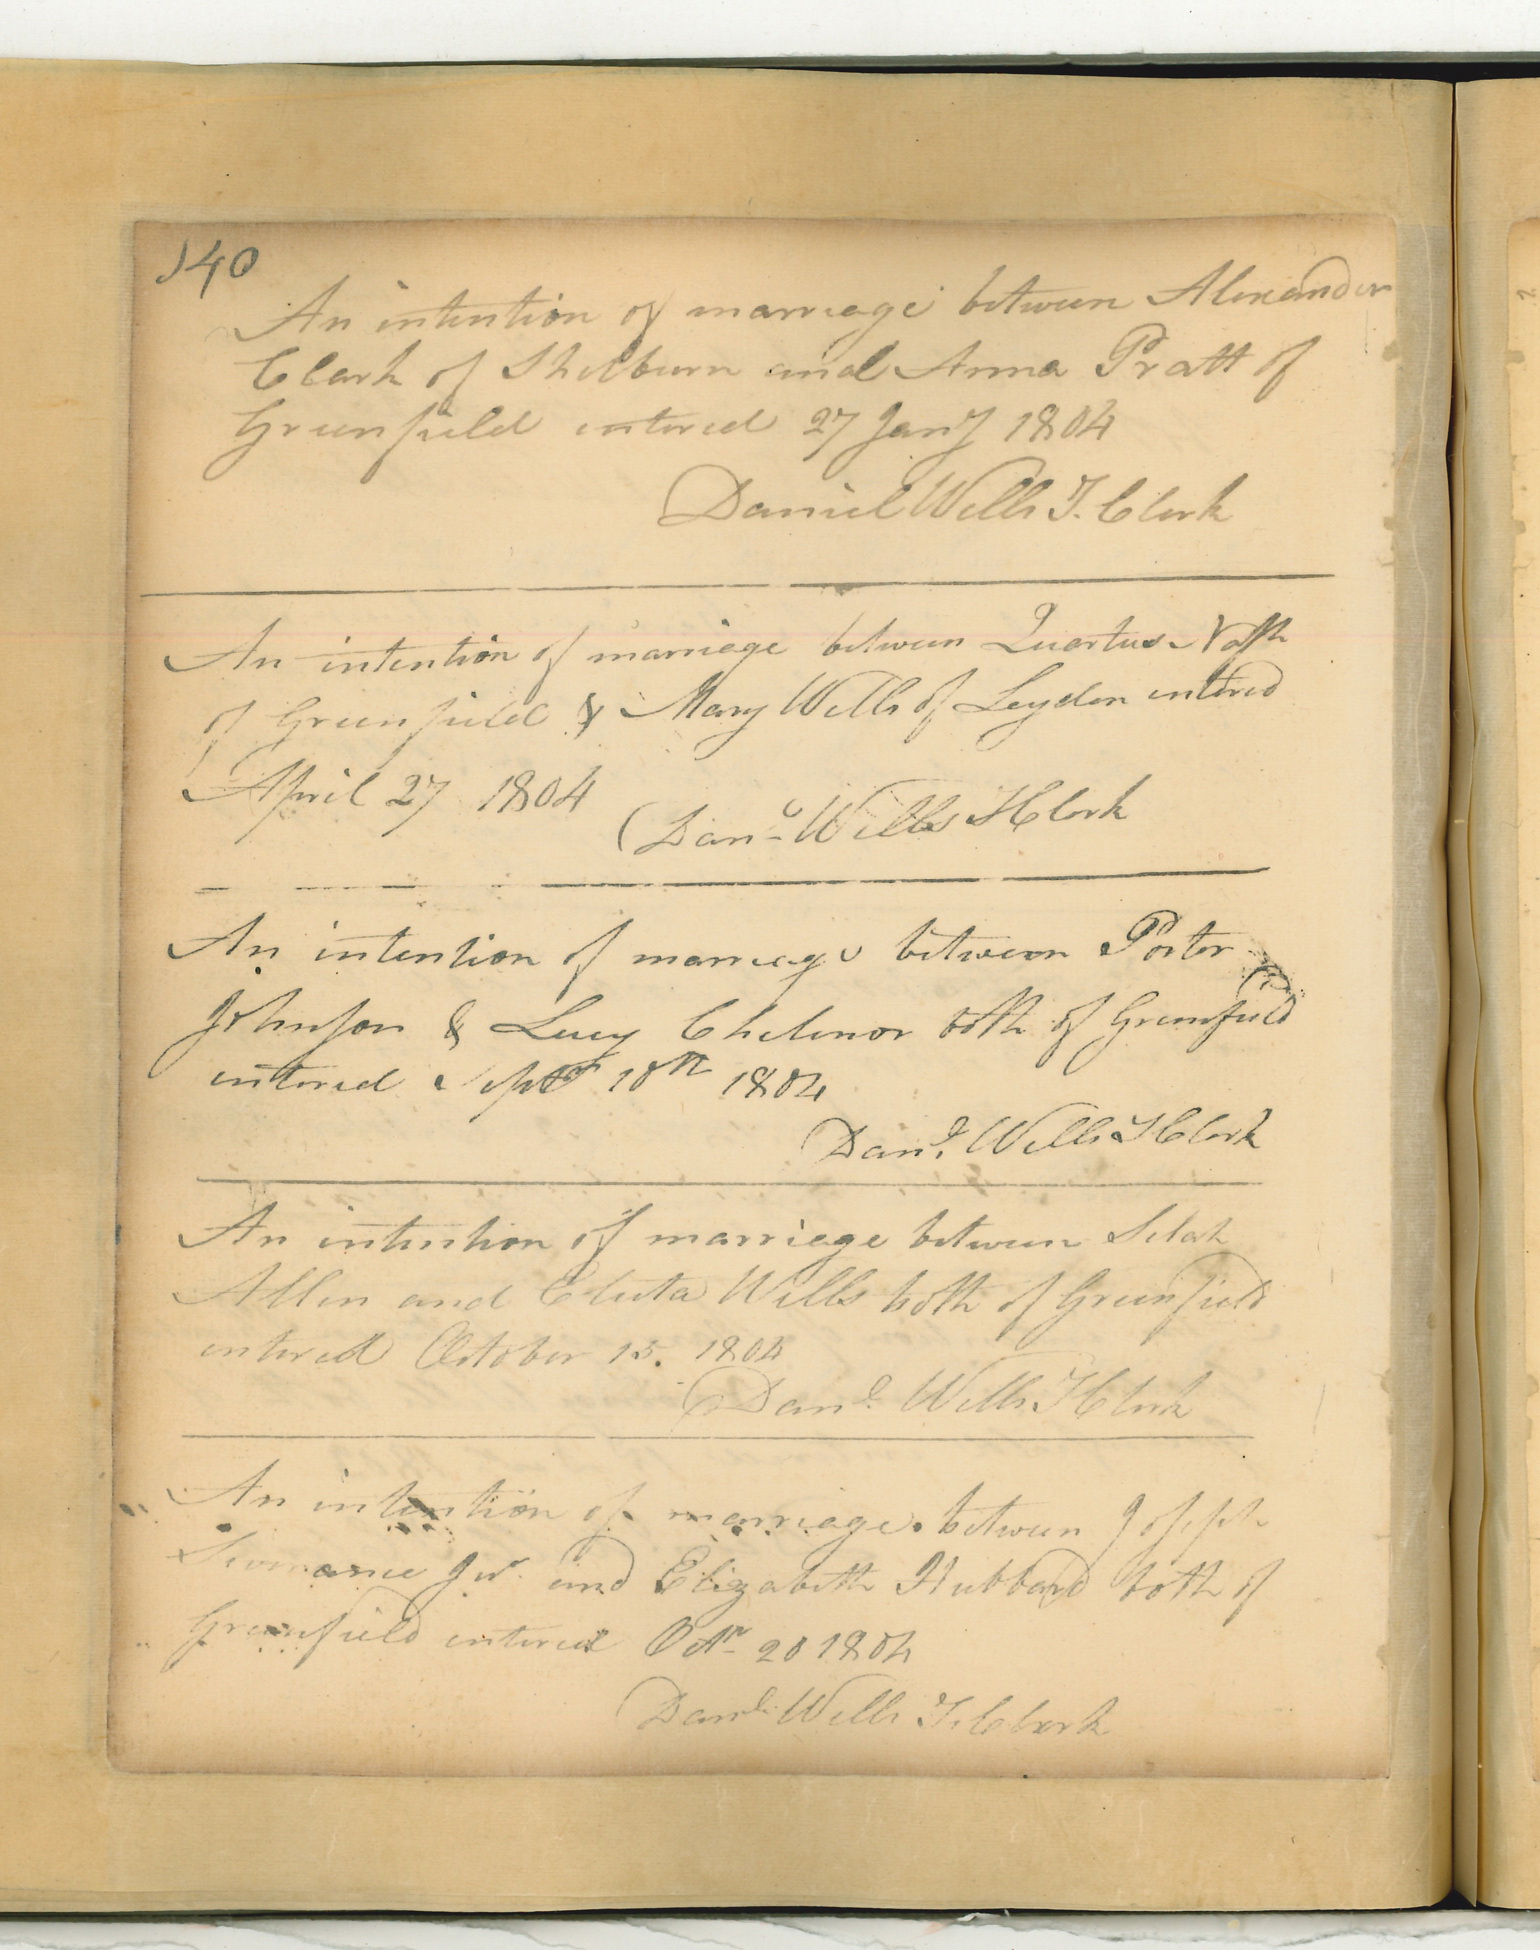 140
An intention of marriage between Alexander
Clark of Shelburn and Anna Pratt of
Greenfield entered 27 Jany 1804
Daniel Wells T. Clerk
An intention of marriage between Quartus Nash
of Greenfield & Mary Wells of Leyden entered
April 27 1804
Danl Wells T Clerk
An intention of marriage between Porter
Johnson & Lucy Chelenor both of Greenfield
entered Septr 10th 1804
Danl. Wells T Clerk
An intention of marriage between Selah
Allen and Eluta Wells both of Greenfield
entered October 15. 1804
Danl. Wells T Clerk
An intention of marriage between Joseph
Jur. and Elizabeth Hubbard both of
Greenfield entered Octr 20 1804
Danl. Wells T. Clerk